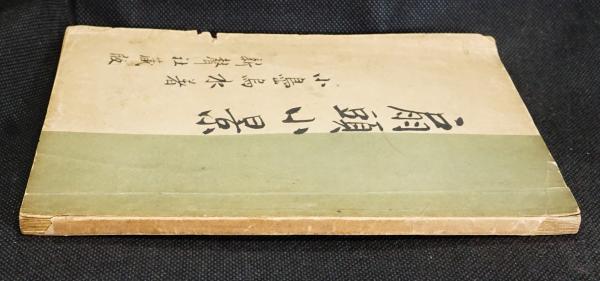 扇頭小景
小島烏水著
新聲社藏版